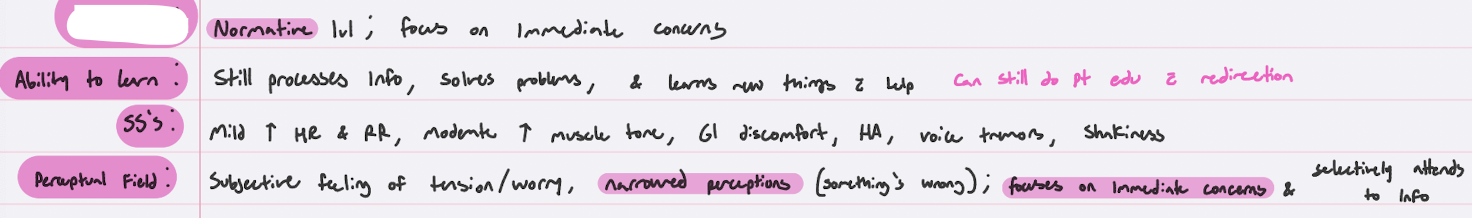 Normative lvl ; focus on Immediate concerns
Ability to learn : Still processes Info, solves problems, & learns new things c help can still do pt edu c redirection
SS's : Mild ↑ HR & RR, moderate ↑ muscle tone, GI discomfort, HA, voice tremors, Shakiness
Perceptual Field : Subjective feeling of tension/worry, narrowed perceptions (something's wrong) ; focuses on Immediate concerns & selectively attends
to Info